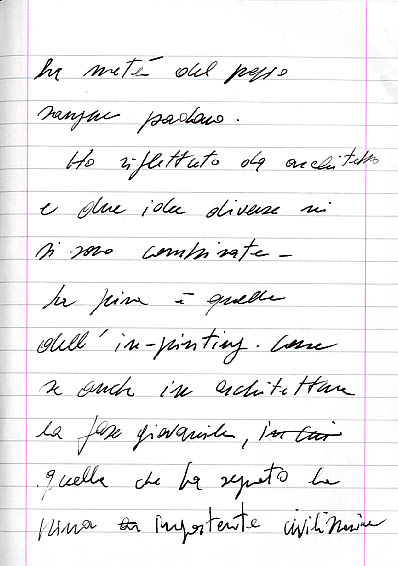 la metà del peggio
sangue padano.
Ho riflettuto da architetto
e due idee diverse mi
si sono combinate -
la prima è quella
dell' in-printing. Come
se anche in architettura
la fase giovanile, in cui
quella che ha segnato la
prima importante